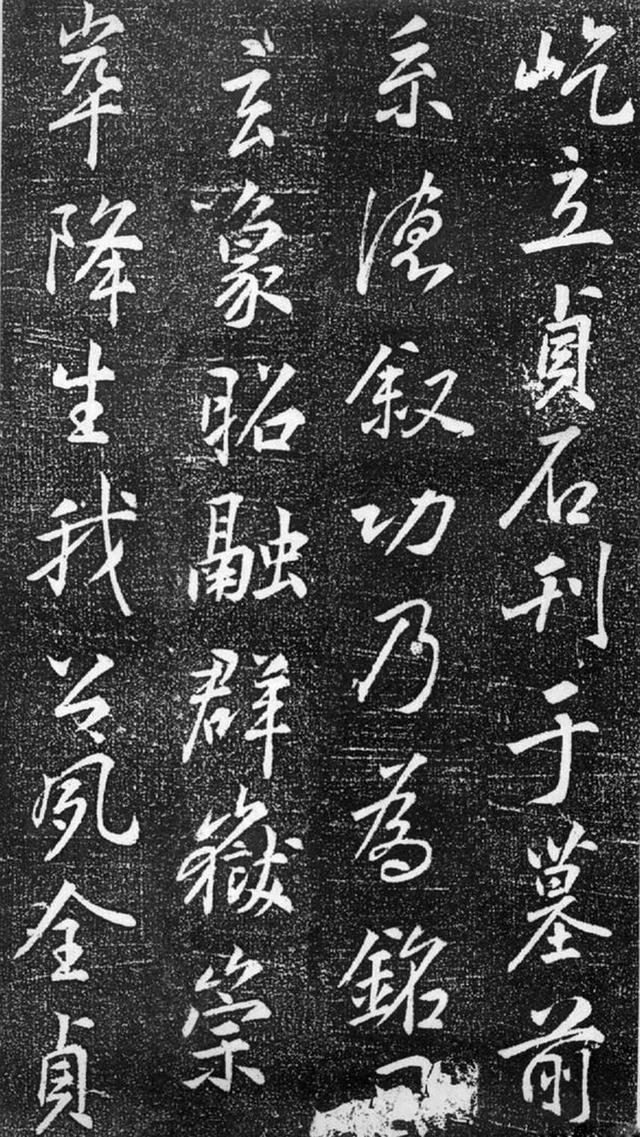 屹立貞石刊于墓前
系德叙功乃為銘
玄象昭融群嶽崇
崒降生我公夙全貞